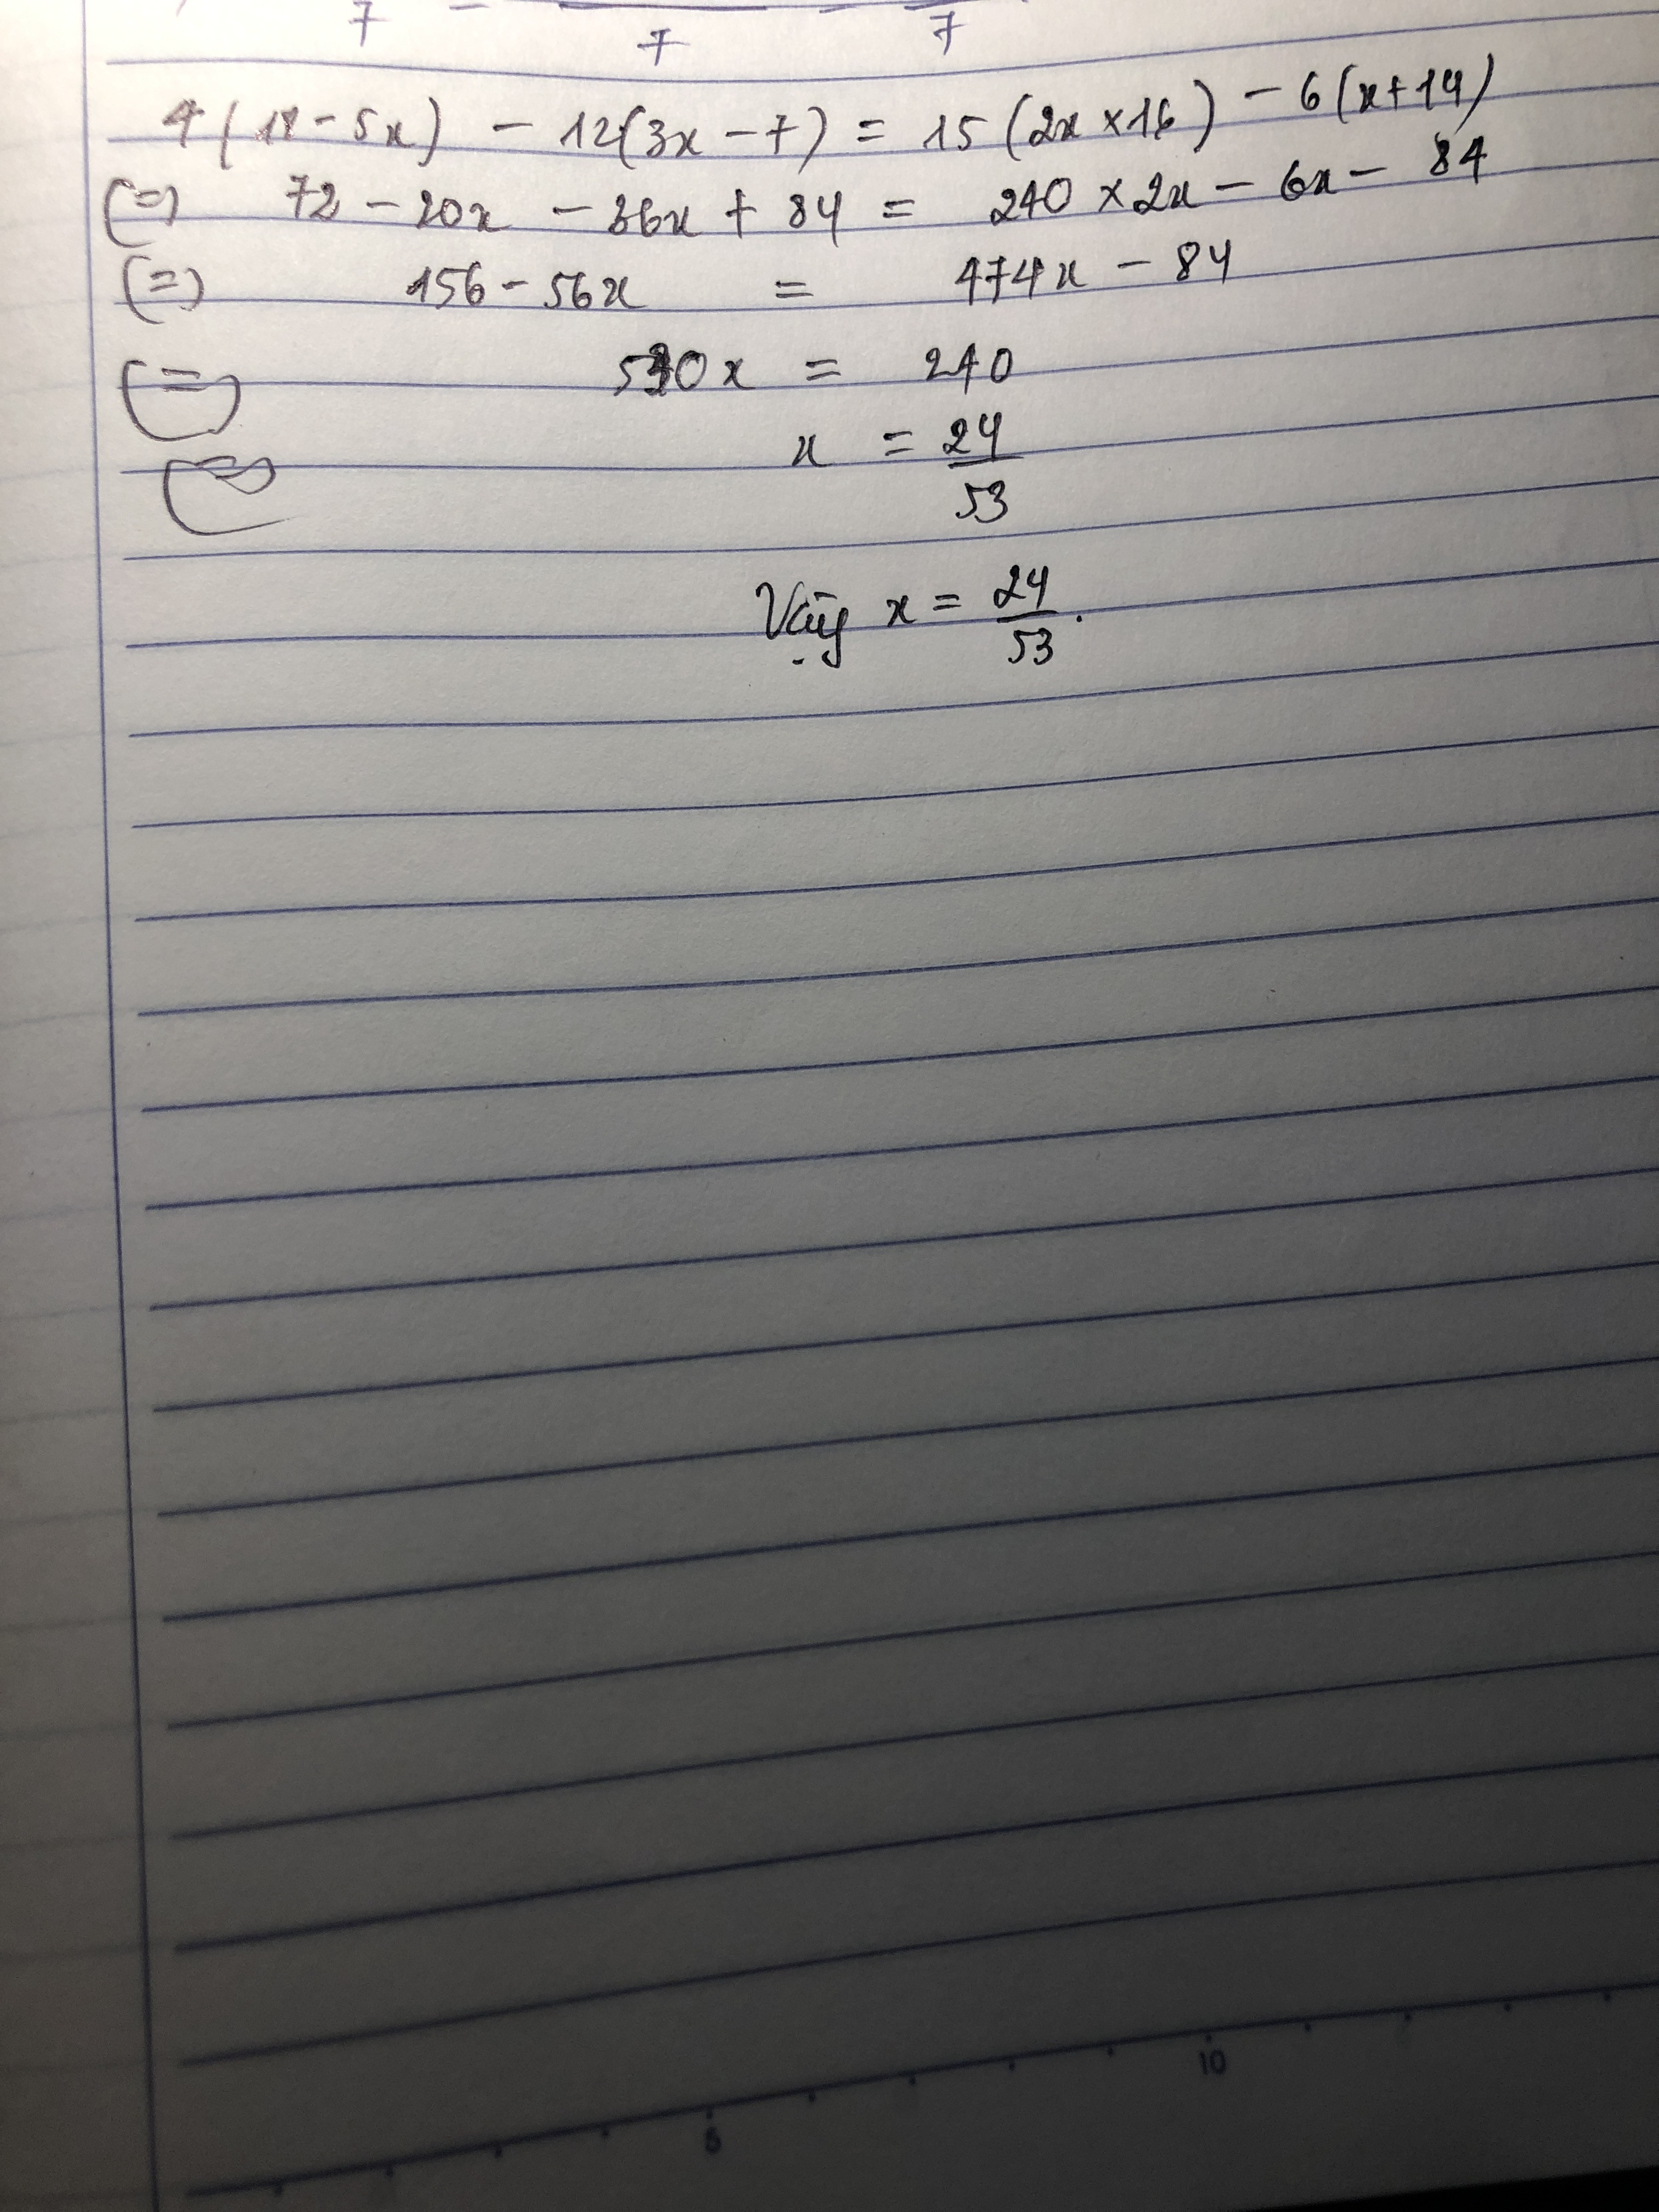 7 - 7 - 7
4(18-5x) - 12(3x-7) = 15(2x×16) - 6(x+14)
(=) 72 - 20x - 36x + 84 = 240 × 2x - 6x - 84
(=) 156 - 56x = 474x - 84
(=) 530x = 240
(=) x = 24/53
Vậy x = 24/53.
5 10